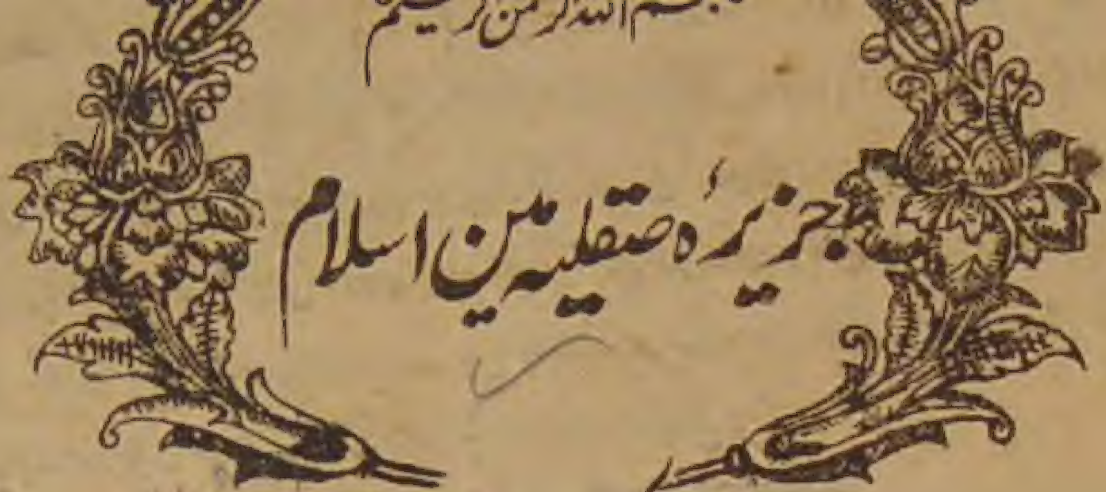 بسم اللہ الرحمن الرحیم
جزیرۂ صقلیہ میں اسلام